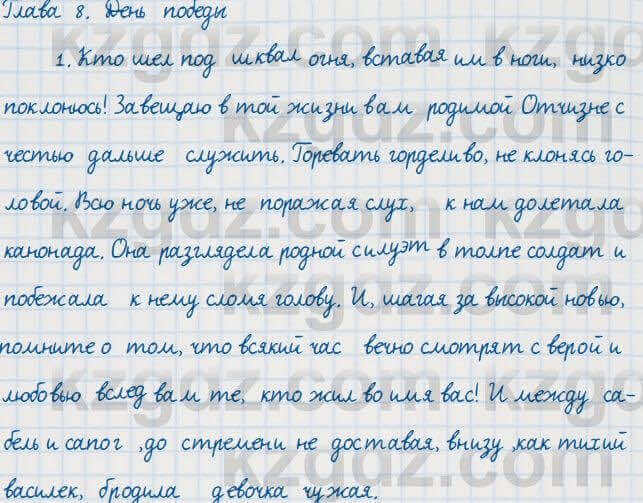 Глава 8. День победы
1. Кто шел под шквал огня, вставая им в ноги, низко
поклонюсь! Завещаю в той жизни вам родимой Отчизне с
честью дальше служить. Горевать горделиво, не клонясь го-
ловой. Всю ночь уже, не поражая слух, к нам долетала
канонада. Она разглядела родной силуэт в толпе солдат и
побежала к нему сломя голову. И, шагая за высокой новью,
помните о том, что всякий час вечно смотрят с верой и
любовью вслед вам те, кто жил во имя вас! И между са-
бель и сапог ,до стремени не доставая, внизу ,как тихий
василек, бродила девочка чужая.
kzgdz.com
kzgdz.com
kzgdz.com
kzgdz.com
kzgdz.com